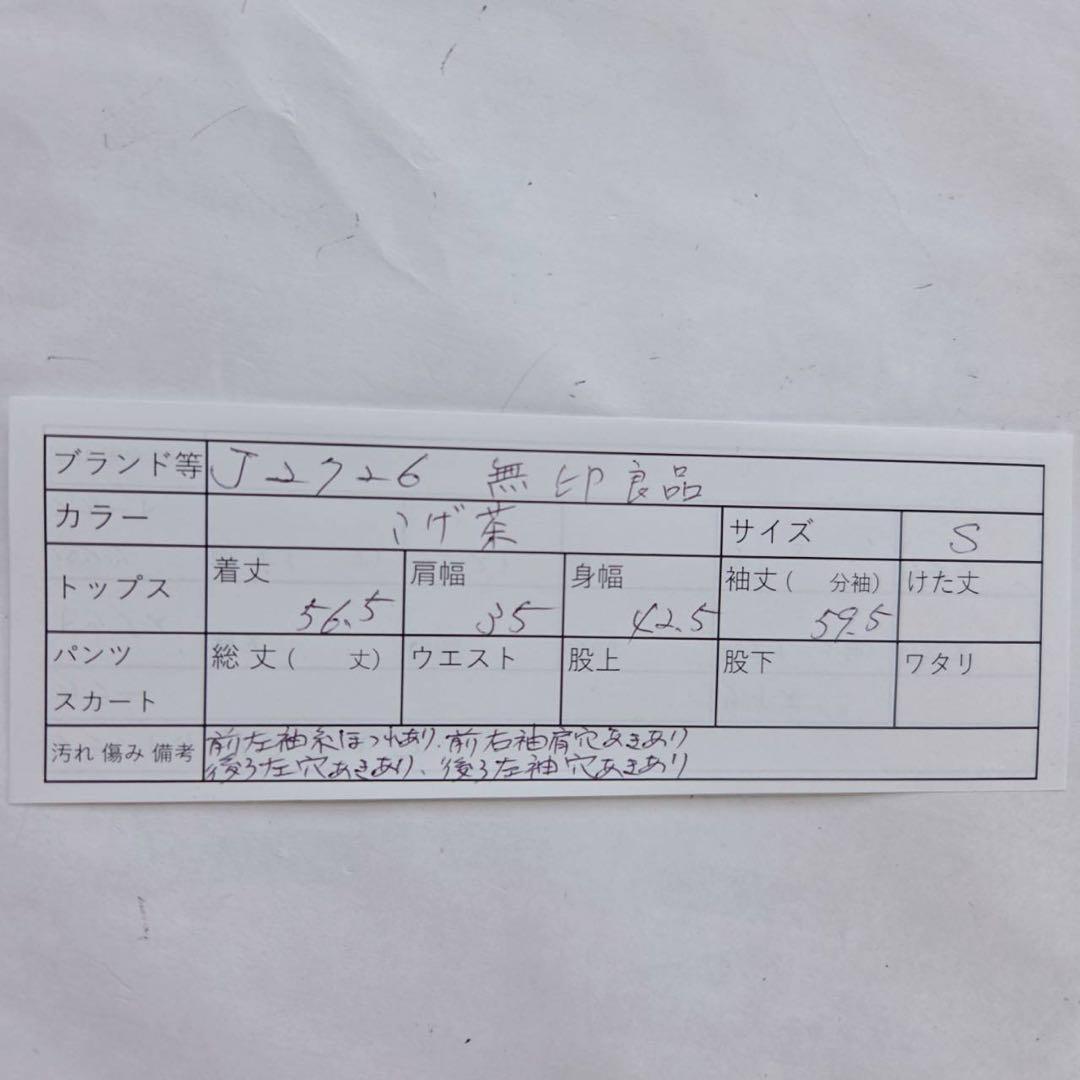 ブランド等 J2726 無印良品
カラー こげ茶 サイズ S
トップス 着丈 56.5 肩幅 35 身幅 42.5 袖丈( 分袖) 59.5 けた丈
パンツ スカート 総丈( 丈) ウエスト 股上 股下 ワタリ
汚れ 傷み 備考 前左袖糸ほつれあり、前右袖肩穴あきあり
後ろ左穴あきあり、後ろ左袖穴あきあり